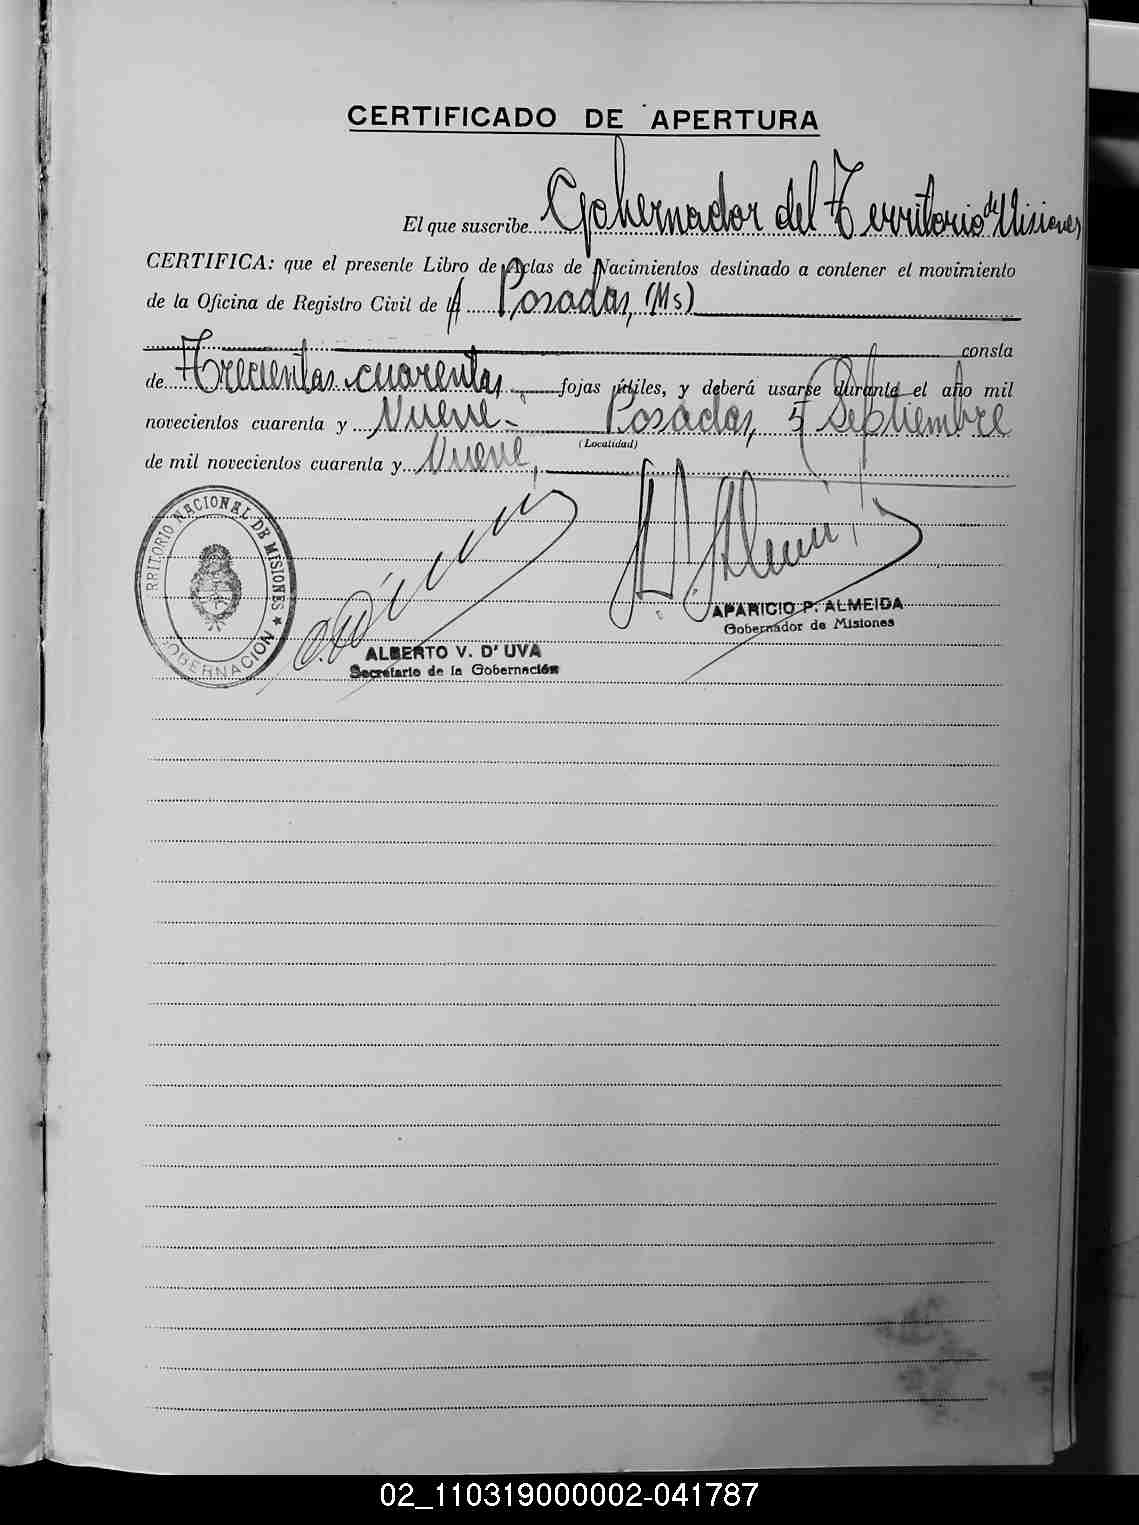 CERTIFICADO DE APERTURA
El que suscribe Gobernador del Territorio de Misiones
CERTIFICA: que el presente Libro de Actas de Nacimientos destinado a contener el movimiento
de la Oficina de Registro Civil de Posadas, (Ms)
consta
de Trecientas cuarenta, fojas útiles, y deberá usarse durante el año mil
novecientos cuarenta y Nueve- Posadas, 5 Septiembre
(Localidad)
de mil novecientos cuarenta y Nueve,
TERRITORIO NACIONAL DE MISIONES ★
GOBERNACION
APARICIO P. ALMEIDA
Gobernador de Misiones
ALBERTO V. D' UVA
Secretario de la Gobernación
02_110319000002-041787